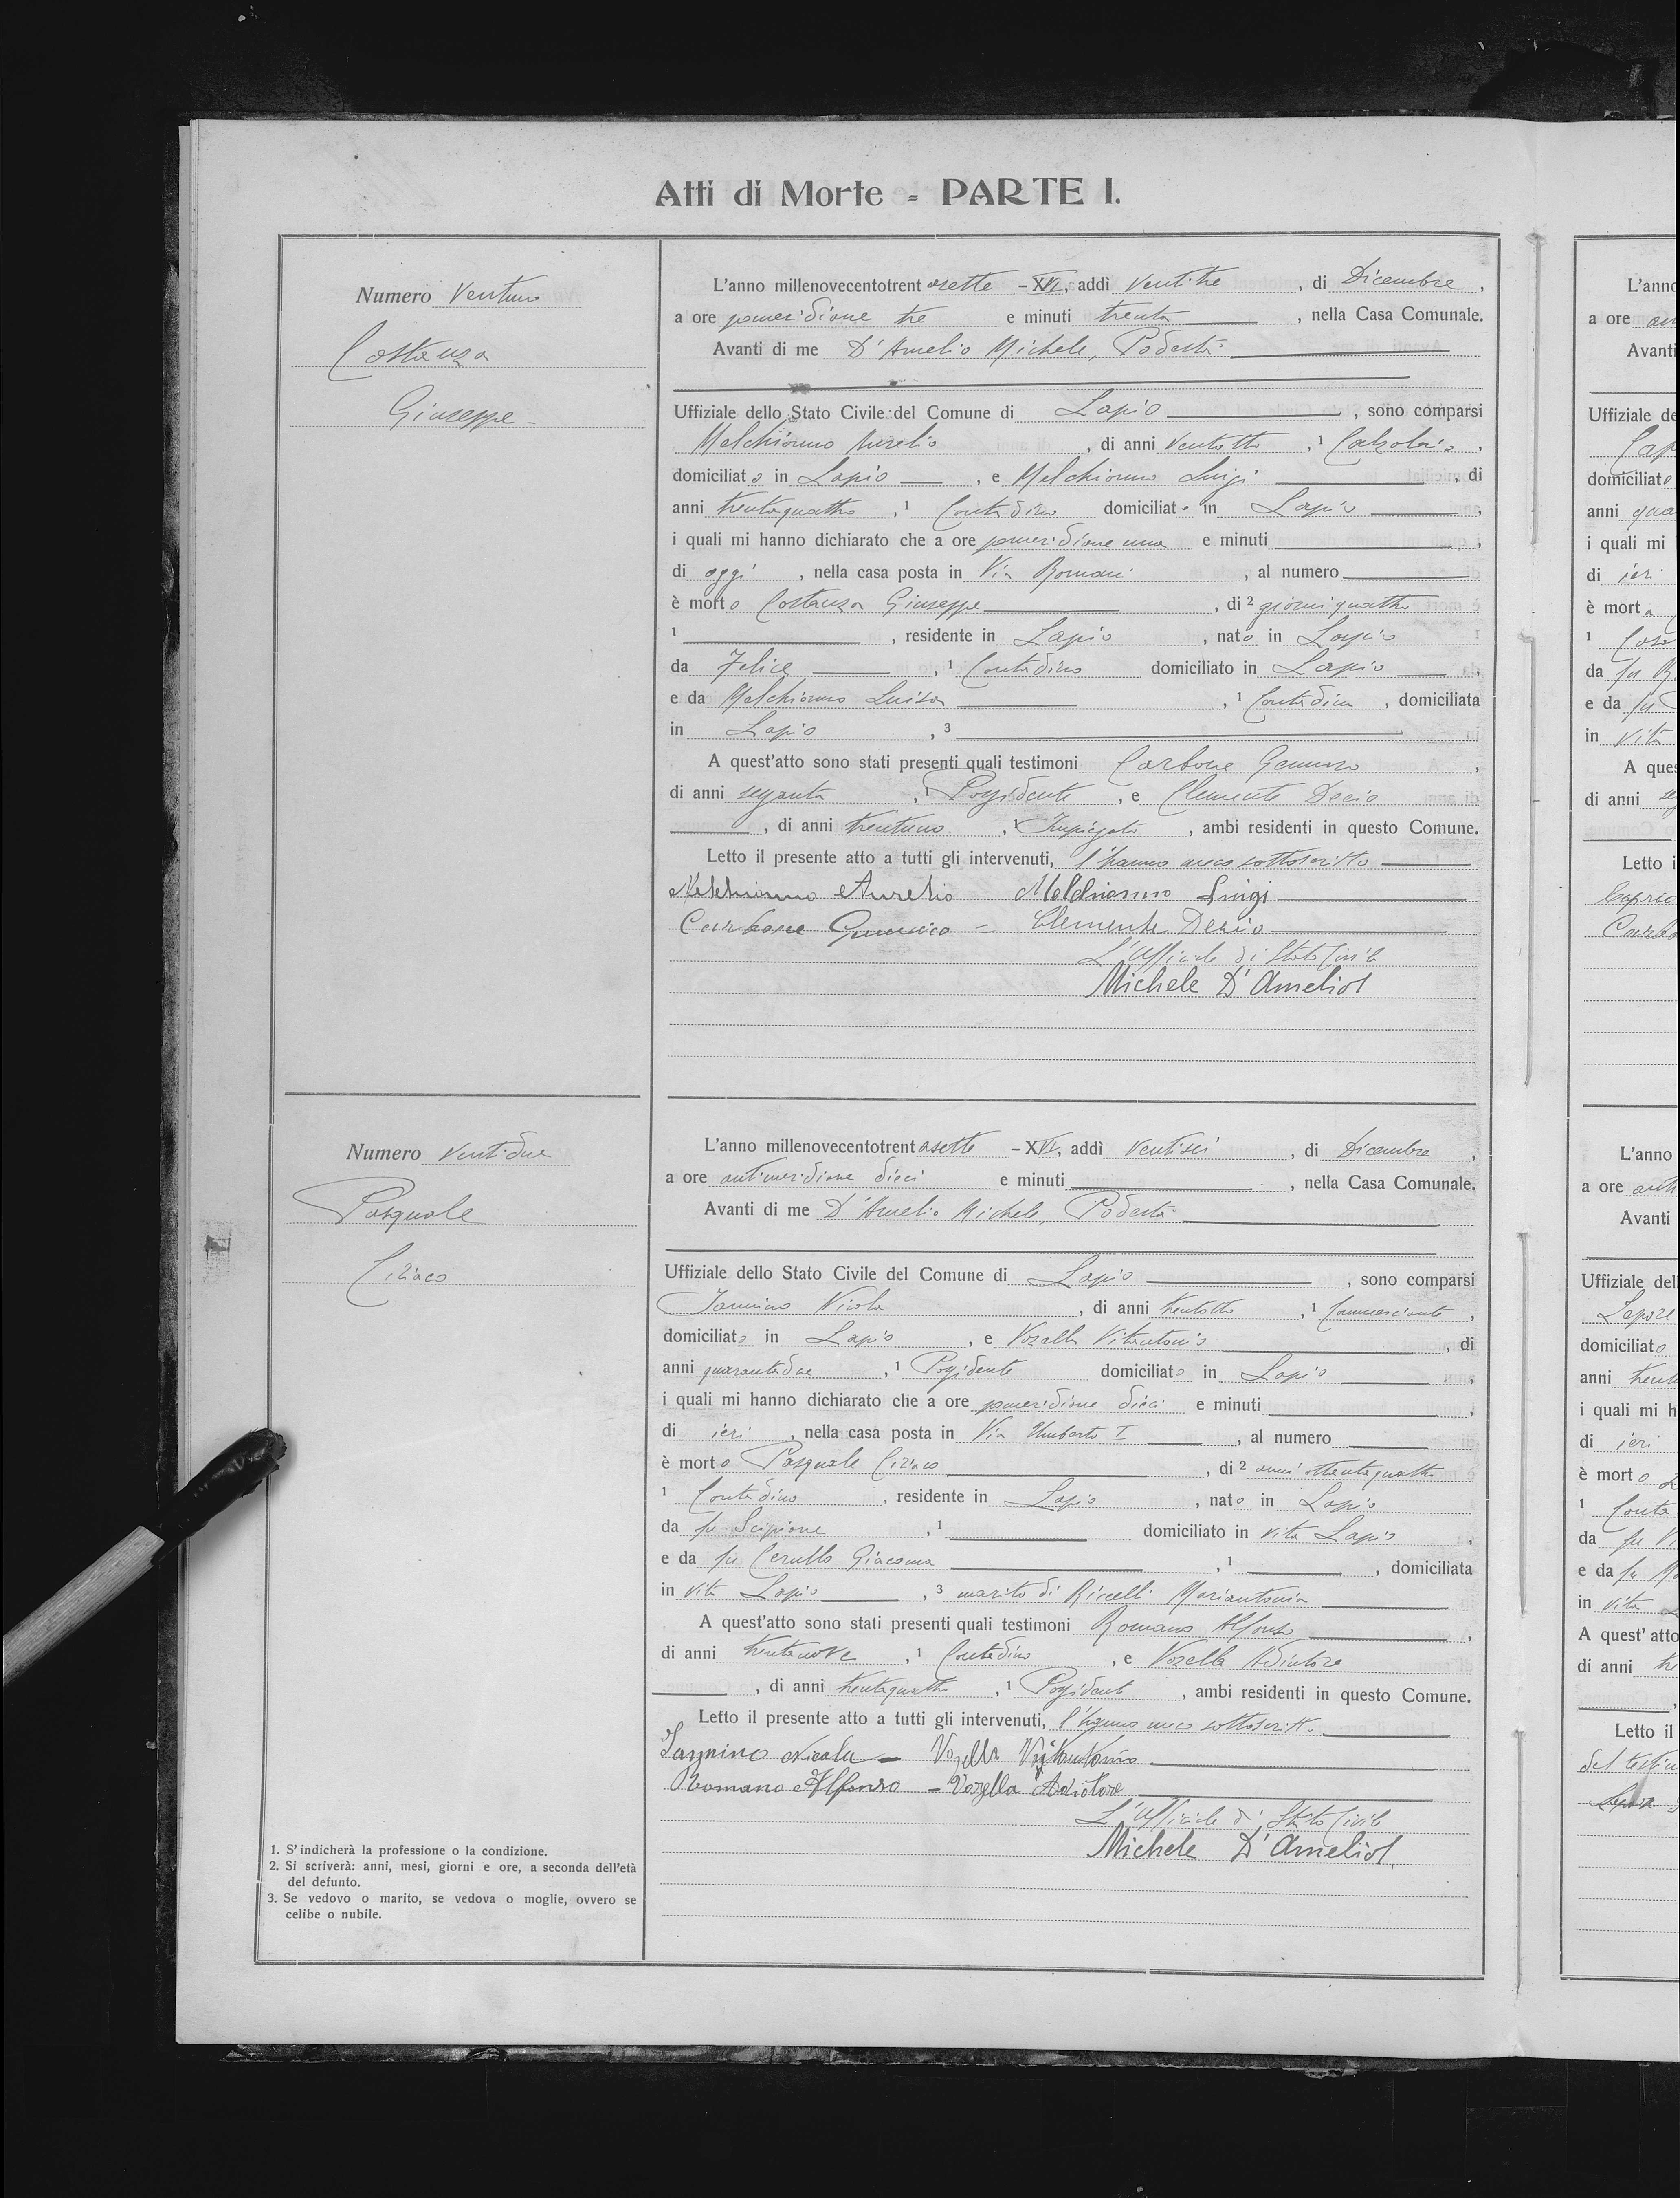 Atti di Morte - PARTE I.
Numero Ventuno
Costanza
Giuseppe
L'anno millenovecentotrentasette - XVI, addì ventitre, di Dicembre,
a ore pomeridiane tre e minuti trenta, nella Casa Comunale.
Avanti di me D'Amelio Michele, Podestà
Uffiziale dello Stato Civile del Comune di Lapio, sono comparsi
Melchionno Aurelio, di anni ventotto, 1 Calzolaio,
domiciliato in Lapio, e Melchionno Luigi, di
anni trentaquattro, 1 Contadino domiciliato in Lapio,
i quali mi hanno dichiarato che a ore pomeridiane una e minuti,
di oggi, nella casa posta in Via Romani, al numero
è morto Costanza Giuseppe, di 2 giorni quattro
1, residente in Lapio, nato in Lapio
da Felice, 1 Contadino domiciliato in Lapio,
e da Melchionno Luisa, 1 Contadina, domiciliata
in Lapio, 3
A quest'atto sono stati presenti quali testimoni Carbone,
di anni sessanta, 1 Possidente, e Clemente Decio
, di anni trentuno, 1 Impiegato, ambi residenti in questo Comune.
Letto il presente atto a tutti gli intervenuti, l'hanno meco sottoscritto
Melchionno Aurelio Melchionno Luigi
Carbone - Clemente Decio
L'Ufficiale di Stato Civile
Michele D'Amelio
Numero Ventidue
Pasquale
Ciriaco
L'anno millenovecentotrentasette - XVI, addì ventisei, di Dicembre,
a ore antimeridiane dieci e minuti, nella Casa Comunale.
Avanti di me D'Amelio Michele, Podestà
Uffiziale dello Stato Civile del Comune di Lapio, sono comparsi
Iannino Nicola, di anni trentotto, 1 Commerciante,
domiciliato in Lapio, e Vozella Vitantonio, di
anni quarantadue, 1 Possidente domiciliato in Lapio,
i quali mi hanno dichiarato che a ore pomeridiane dieci e minuti,
di ieri, nella casa posta in Via Umberto I, al numero
è morto Pasquale Ciriaco, di 2 anni ottantaquattro
1 Contadino, residente in Lapio, nato in Lapio
da fu Scipione, 1 domiciliato in vita Lapio,
e da fu Cerullo Giacoma, 1, domiciliata
in vita Lapio, 3 marito di Riccelli Mariantonia
A quest'atto sono stati presenti quali testimoni Romano Alfonso,
di anni trentanove, 1 Contadino, e Vozella Adiutore
, di anni trentaquattro, 1 Possidente, ambi residenti in questo Comune.
Letto il presente atto a tutti gli intervenuti, l'hanno meco sottoscritto.
Iannino Nicola - Vozella Vitantonio
Romano Alfonso - Vozella Adiutore
L'Ufficiale di Stato Civile
Michele D'Amelio
1. S'indicherà la professione o la condizione.
2. Si scriverà: anni, mesi, giorni e ore, a seconda dell'età
del defunto.
3. Se vedovo o marito, se vedova o moglie, ovvero se
celibe o nubile.
L'anno
a ore
Avanti
Uffiziale
domiciliato
anni
i quali mi
di ieri
è morta
1
da fu
e da fu
in vita
A ques
di anni
Letto i
L'anno
a ore
Avanti
Uffiziale del
Lepore
domiciliato
anni
i quali mi h
di ieri
è morto
1 Conta
da fu
e da fu
in vita
A quest'atto
di anni
Letto il